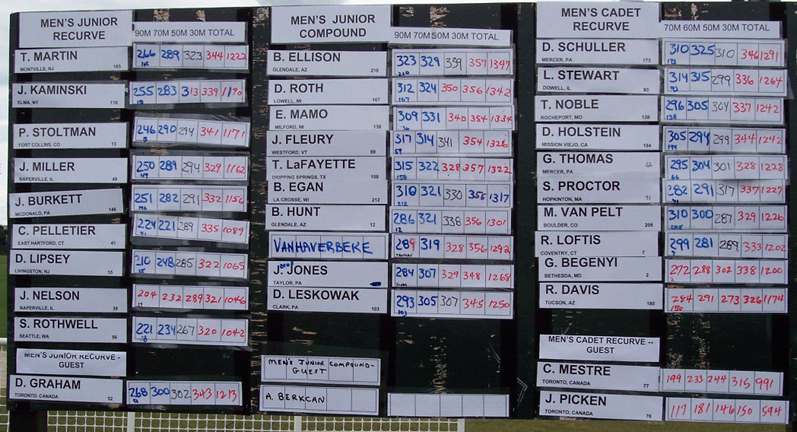 MEN'S JUNIOR
RECURVE
90M 70M 50M 30M TOTAL
T. MARTIN 266 289 323 344 1222
MONTVILLE, NJ 165
J. KAMINSKI 255 283 313 339 1190
ELMA, NY 118
P. STOLTMAN 246 290 294 341 1171
FORT COLLINS, CO
J. MILLER 250 289 294 329 1162
NAPERVILLE, IL 49
J. BURKETT 251 282 291 332 1156
MCDONALD, PA 146
C. PELLETIER 224 221 289 335 1069
EAST HARTFORD, CT 41
D. LIPSEY 210 248 285 322 1065
LIVINGSTON, NJ 55
J. NELSON 204 232 289 321 1046
NAPERVILLE, IL 39
S. ROTHWELL 221 234 267 320 1042
SEATTLE, WA 56
MEN'S JUNIOR RECURVE -
GUEST
D. GRAHAM 268 300 302 343 1213
TORONTO, CANADA 52
MEN'S JUNIOR
COMPOUND
90M 70M 50M 30M TOTAL
B. ELLISON 323 329 338 357 1347
GLENDALE, AZ 210
D. ROTH 312 324 350 356 1342
LOWELL, MI 167
E. MAMO 309 331 340 354 1334
MILFORD, MI 136
J. FLEURY 317 314 341 354 1326
WESTFORD, VT 59
T. LaFAYETTE 315 322 328 357 1322
DRIPPING SPRINGS, TX 158
B. EGAN 310 321 330 356 1317
LA CROSSE, WI 212
B. HUNT 286 321 338 356 1301
GLENDALE, AZ 12
VANHAVERBEKE 289 319 328 356 1292
J. JONES 284 307 329 348 1268
TAYLOR, PA
D. LESKOWAK 293 305 307 345 1250
CLARK, PA 103
MEN'S JUNIOR COMPOUND-
GUEST
A. BERKCAN
MEN'S CADET
RECURVE
70M 60M 50M 30M TOTAL
D. SCHULLER 310 325 310 346 1291
MERCER, PA 173
L. STEWART 314 315 299 336 1264
DOWELL, IL 93
T. NOBLE 296 305 304 337 1242
ROCHEPORT, MO 138
D. HOLSTEIN 305 294 299 344 1242
MISSION VIEJO, CA 194
G. THOMAS 295 304 301 328 1228
MERCER, PA
S. PROCTOR 282 291 317 337 1227
HOPKINTON, MA
M. VAN PELT 310 300 287 329 1226
BOULDER, CO 205
R. LOFTIS 299 281 289 333 1202
COVENTRY, CT 7
G. BEGENYI 272 288 302 338 1200
BETHESDA, MD 2
R. DAVIS 284 291 273 326 1174
TUCSON, AZ 180
MEN'S CADET RECURVE --
GUEST
C. MESTRE 199 233 244 315 991
TORONTO, CANADA 77
J. PICKEN 117 181 146 150 594
TORONTO, CANADA 76